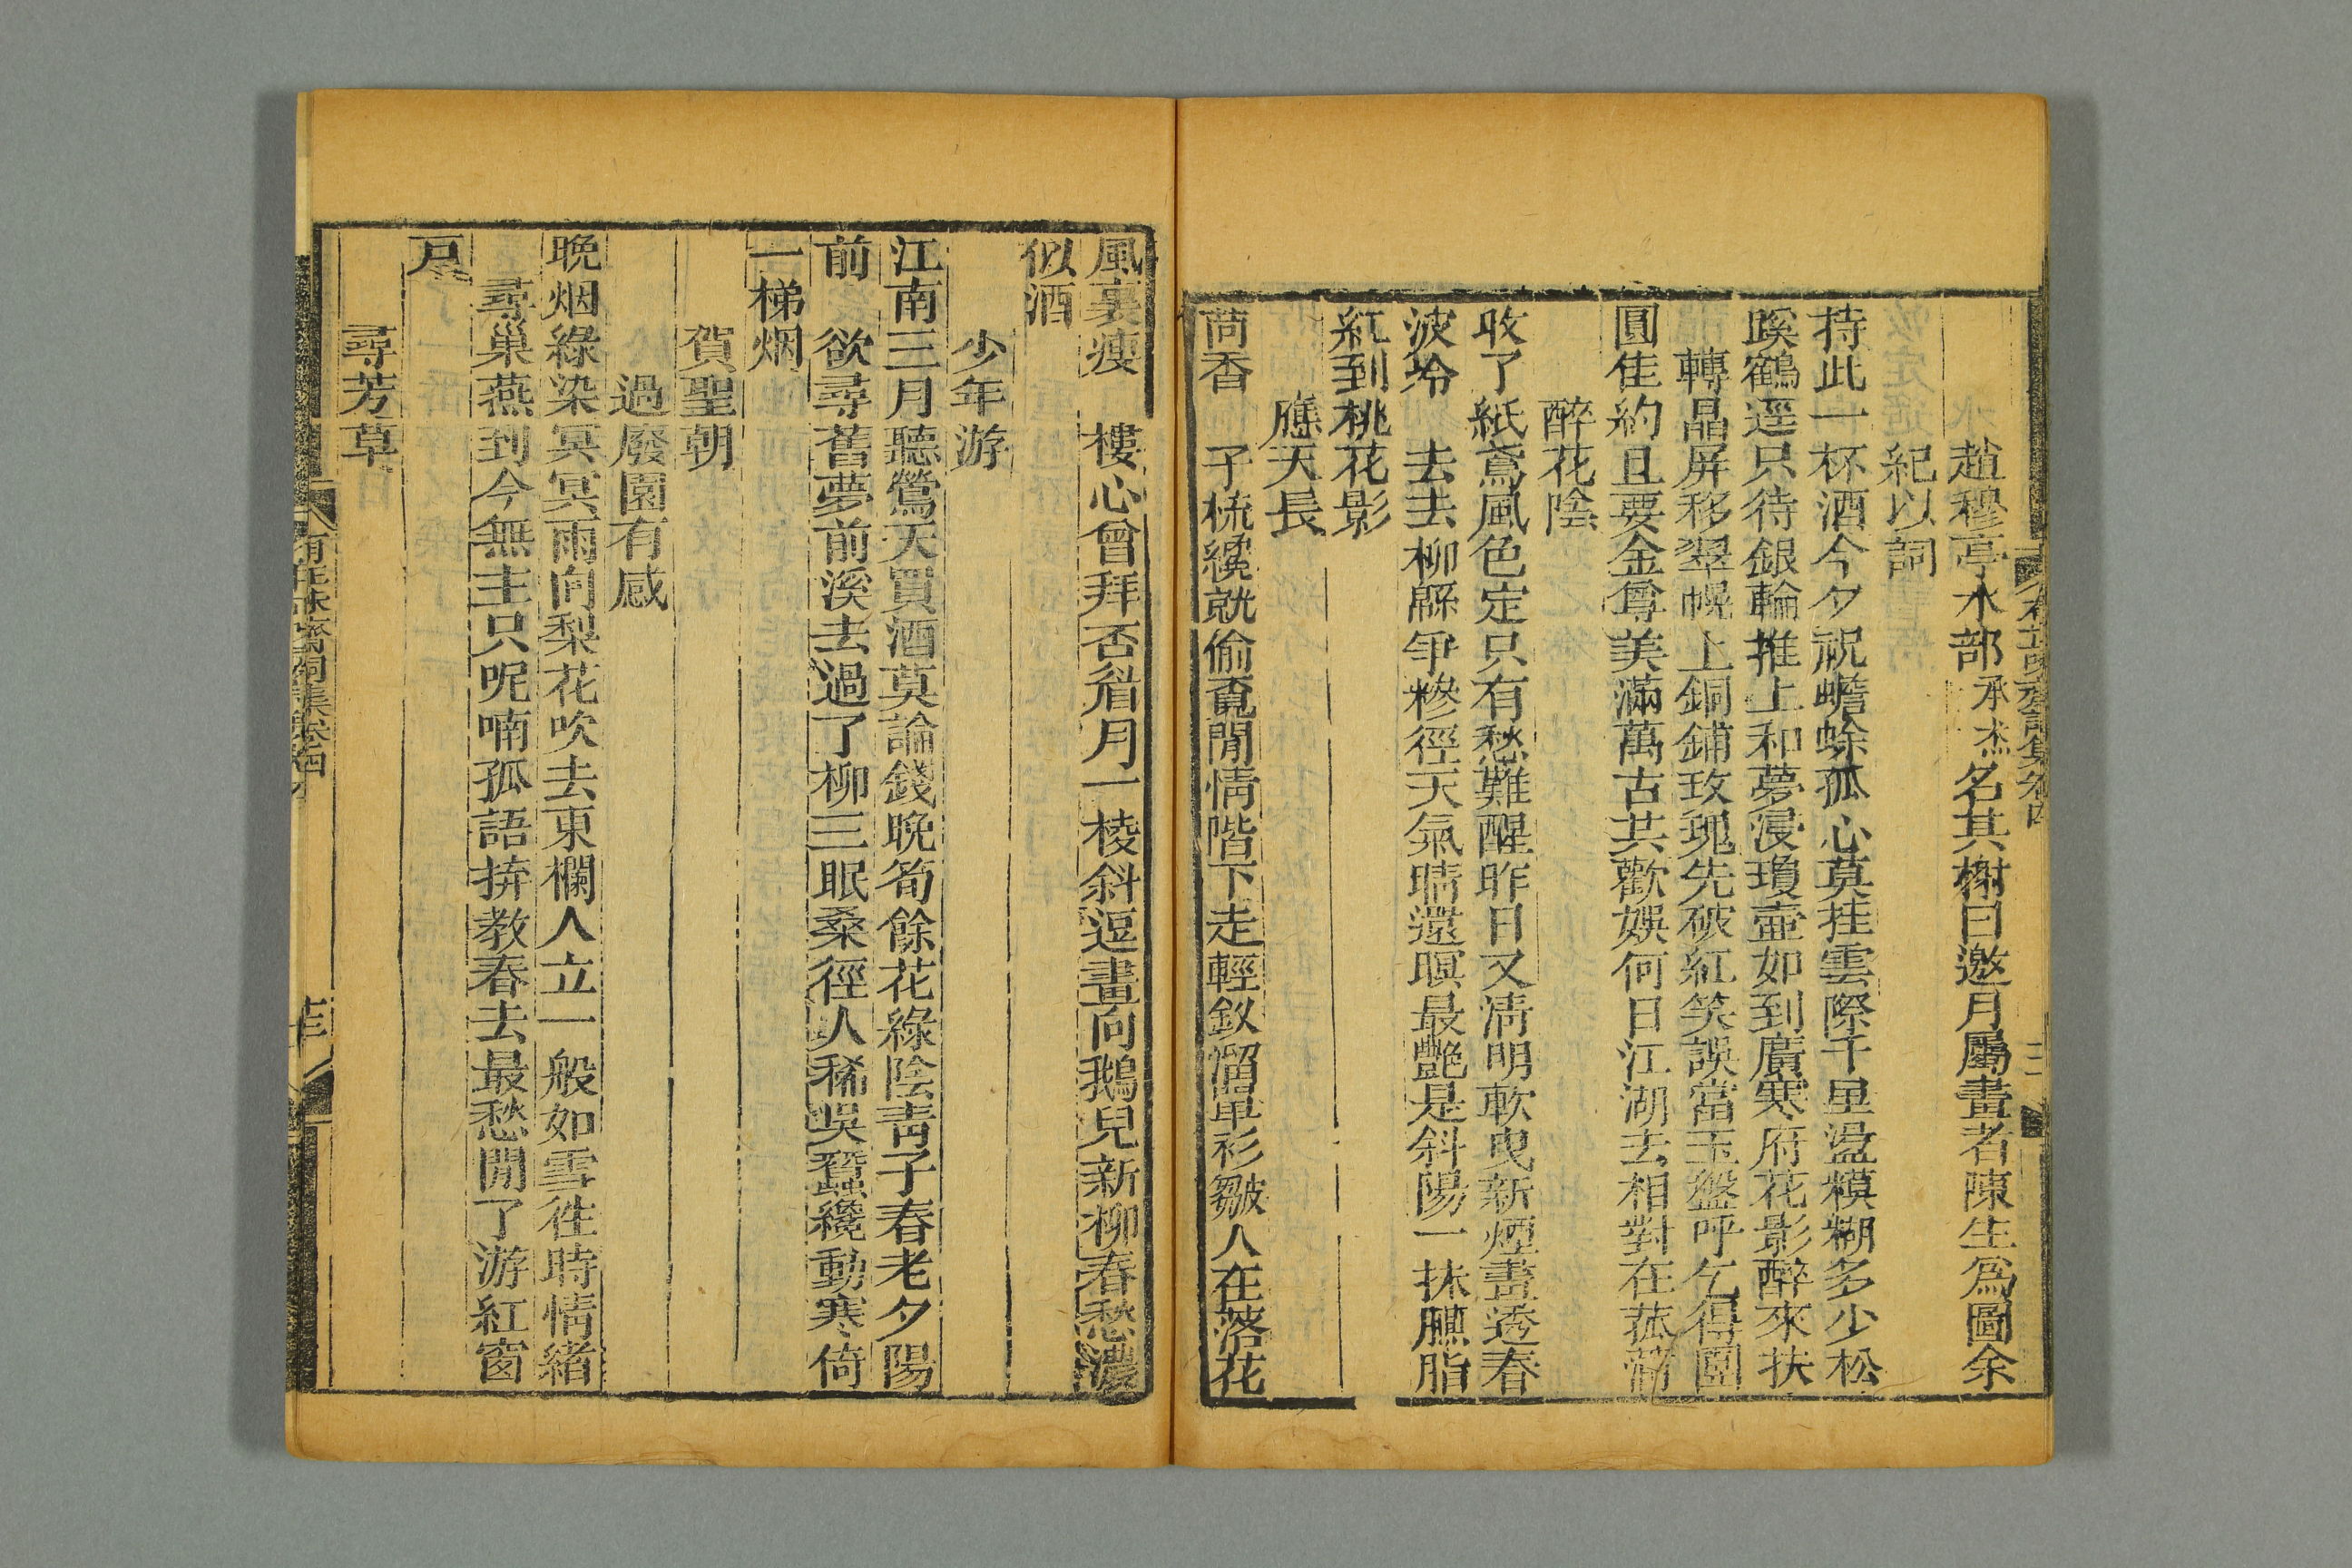 趙穆亭水部承杰名其榭曰邀月屬畫者陳生爲圖余
紀以詞
持此一杯酒今夕祝蟾蜍孤心莫挂雲際千里盪模糊多少松
蹊鶴逕只待銀輪推上和夢浸瓊壺如到廣寒府花影醉來扶
轉晶屏移翠幌上銅鋪玫瑰先破紅笑誤當玉盤呼乞得團
圓佳約且要金尊美滿萬古共歡娛何日江湖去相對在菰蒲
醉花陰
收了紙鳶風色定只有愁難醒昨日又淸明軟曳新煙畫透春
波冷　去去柳縣爭糝徑天氣晴還暝最艶是斜陽一抹臙脂
紅到桃花影
應天長
茼香　子梳纔就偷覓閒情階下走輕釵溜單衫皺人在落花
風裏瘦　樓心曾拜否眉月一棱斜逗畫向鵝兒新柳春愁濃
似酒
少年游
江南三月聽鶯天買酒莫論錢晚筍餘花綠陰靑子春老夕陽
前　欲尋舊夢前溪去過了柳三眠桑徑人稀吳蠶纔動寒倚
一梯烟
賀聖朝
過廢園有感
晚烟綠染冥冥雨向梨花吹去東欄人立一般如雪往時情緒
尋巢燕到今無主只呢喃孤語拚教春去最愁閒了游紅窗
戸
尋芳草
有正味齋詞集卷四